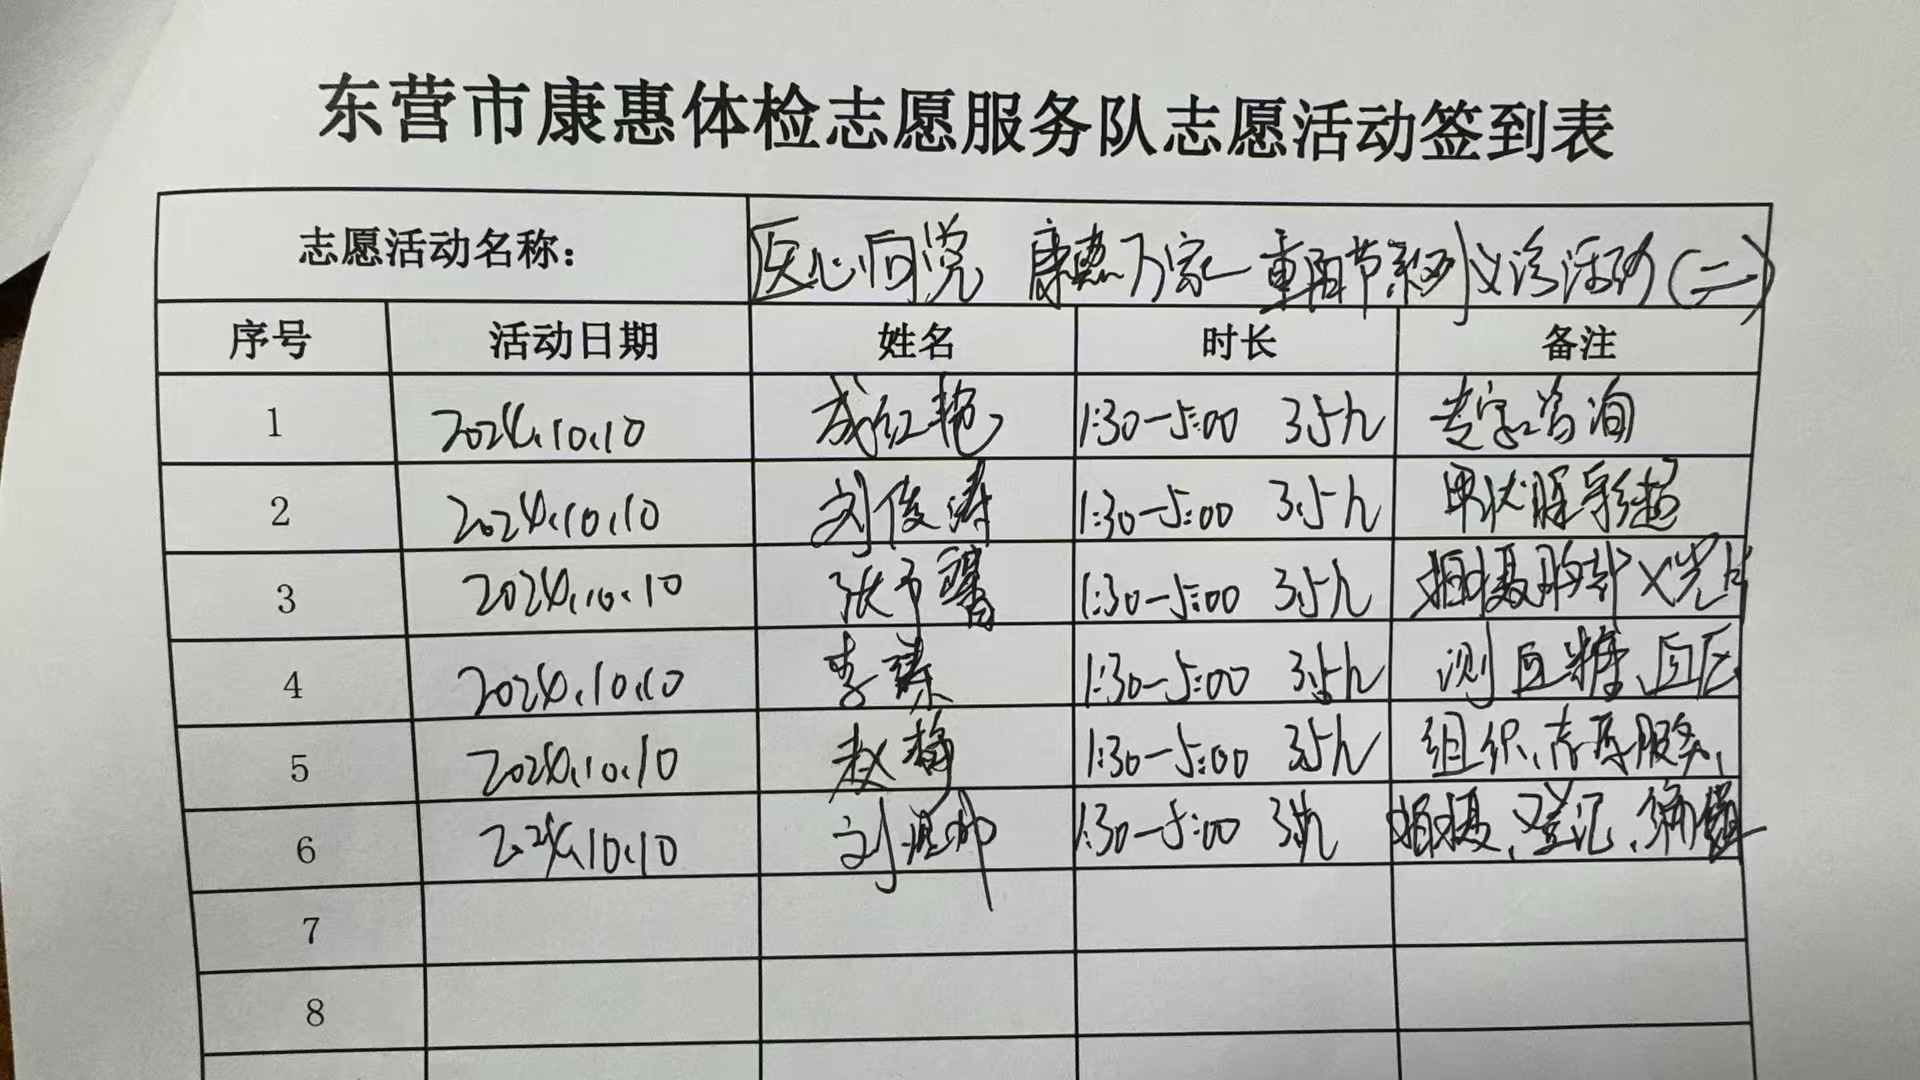 东营市康惠体检志愿服务队志愿活动签到表
志愿活动名称: 医心向党 康惠万家 重阳节系列义诊活动(二)
序号 活动日期 姓名 时长 备注
1 2024.10.10 成红艳 1:30-5:00 3.5h 专家咨询
2 2024.10.10 刘俊涛 1:30-5:00 3.5h 甲状腺彩超
3 2024.10.10 张予 1:30-5:00 3.5h 拍摄胸部X光片
4 2024.10.10 李臻 1:30-5:00 3.5h 测血糖、血压
5 2024.10.10 赵梅 1:30-5:00 3.5h 组织、服务、
6 2024.10.10 刘 1:30-5:00 3.5h 拍摄、登记、
7
8